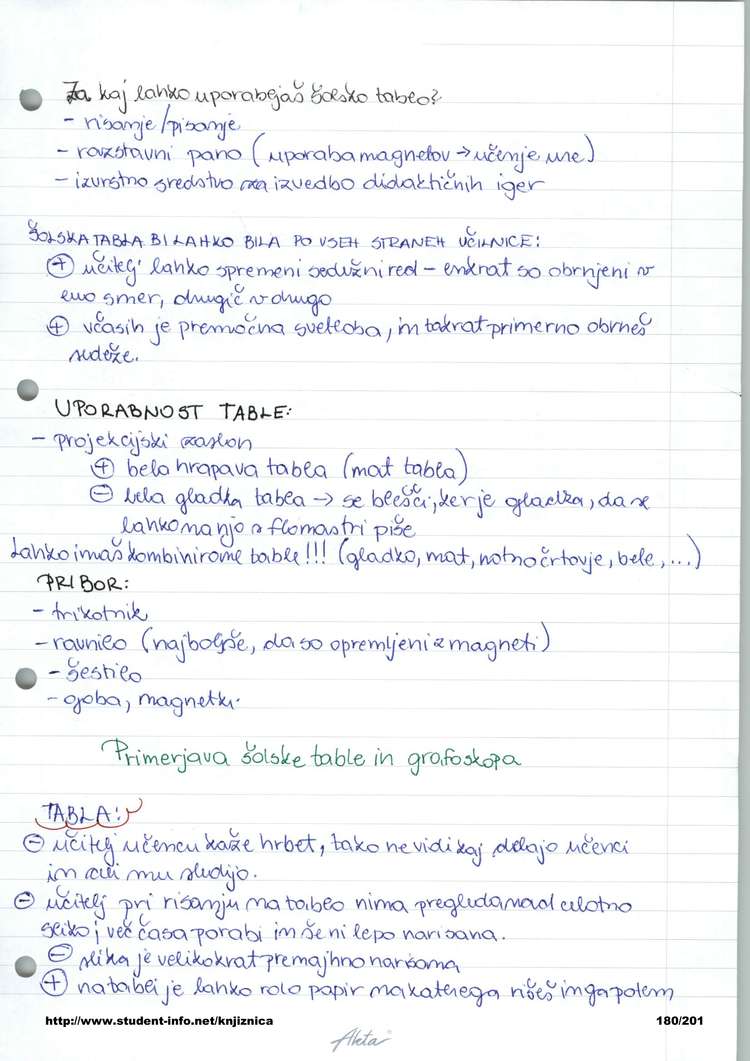 Za kaj lahko uporabljaš šolsko tablo?
- risanje/pisanje
- razstavni pano (uporaba magnetov → učenje ure)
- izvrstno sredstvo za izvedbo didaktičnih iger
ŠOLSKA TABLA BI LAHKO BILA PO VSEH STRANEH UČILNICE:
⊕ učitelj lahko spremeni sedežni red - enkrat so obrnjeni v
eno smer, drugič v drugo
⊕ včasih je premočna svetloba, in takrat primerno obrneš
sedeže.
UPORABNOST TABLE:
- projekcijski zaslon
⊕ bela hrapava tabla (mat tabla)
⊖ bela gladka tabla → se blešči, ker je gladka, da se
lahko na njo s flomastri piše
Lahko imaš kombinirane table!!! (gladko, mat, notno črtovje, bele, ...)
PRIBOR:
- trikotnik
- ravnilo (najboljše, da so opremljeni z magneti)
- šestilo
- goba, magnetki.
Primerjava šolske table in grafoskopa
TABLA:
⊖ učitelj učencu kaže hrbet, tako ne vidi kaj delajo učenci
in ali mu sledijo.
⊖ učitelj pri risanju na tablo nima pregleda nad celotno
sliko; več časa porabi in še ni lepo narisana.
⊖ slika je velikokrat premajhno narisana
⊕ na tabli je lahko rolo papir na katerega rišeš in ga potem
http://www.student-info.net/knjiznica
180/201